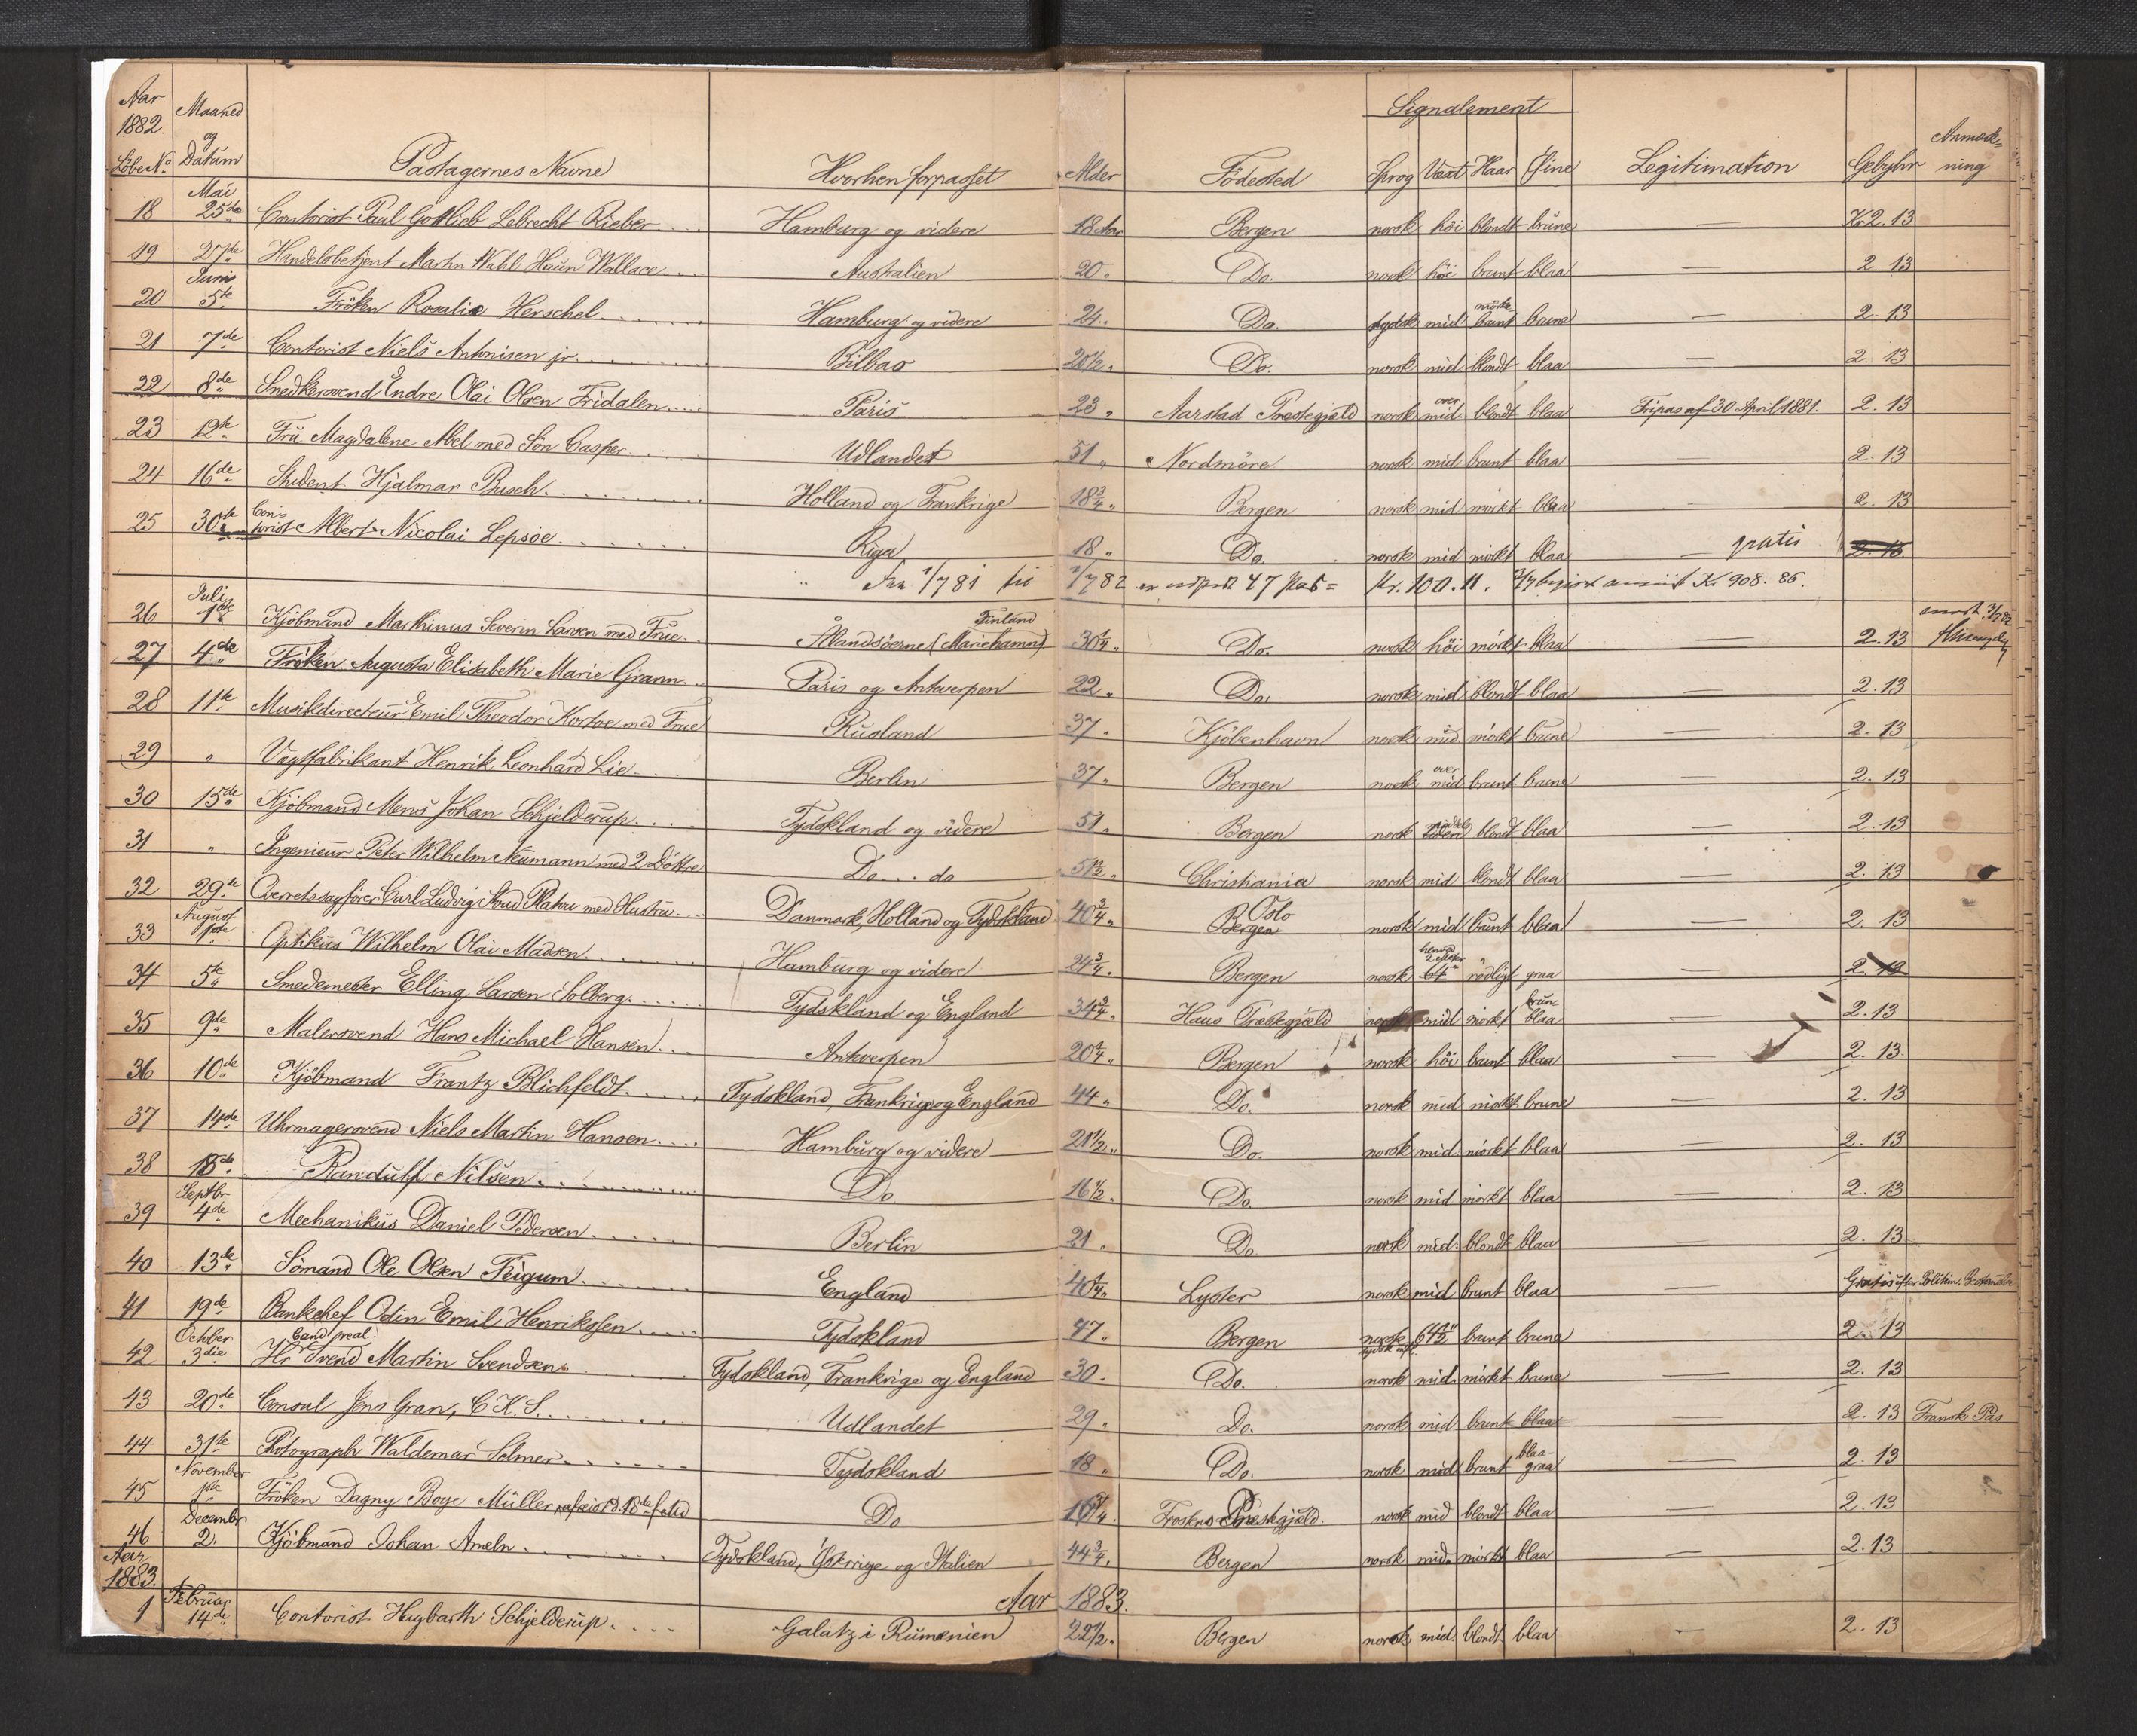 Aar 1882. Maaned og Datum Signalement
Löbe No. Passagernes Navne Hvorhen forpasset Alder Födested Sprog Vext Haar Öine Legitimation Gebyhr Anmærkning
Mai
18 25de Contorist Paul Gottlieb Lebrecht Rieber Hamburg og videre 18 Aar Bergen norsk höi blondt brune — Kr 2.13
19 27de Handelsbetjent Martin Wahl Huun Wallace Australien 20 " Do. norsk höi brunt blaa — 2.13
Juni
20 5te Fröken Rosalie Herschel Hamburg og videre 24 " Do. tydsk mid mörke brunt brune — 2.13
21 7de Contorist Niels Antonisen jr. Bilbao 20 1/2 " Do. norsk mid blondt blaa — 2.13
22 8de Snedkersvend Endre Olai Olsen Fridalen Paris 23 " Aarstad Præstegjeld norsk over mid blondt blaa Fripas af 30 April 1881. 2.13
23 12te Fru Magdalene Abel med Sön Casper Udlandet 51 " Nordmöre norsk mid brunt blaa — 2.13
24 16de Student Hjalmar Busch Holland og Frankrige 18 3/4 " Bergen norsk mid mörkt blaa — 2.13
25 30te Contorist Albert Nicolai Lepsöe Riga 18 " Do. norsk mid mörkt blaa — gratis 2.13
Fra 1/7 81 til 1/7 82 er udstedt 47 Pas = Kr. 100.11. Kr. 908.86.
Juli
26 1ste Kjöbmand Marthinus Severin Larsen med Frue Ålandsöerne (Mariehamn) Finland 30 1/4 " Do. norsk höi mörkt blaa — 2.13
27 4de Fröken Augusta Elisabeth Marie Grann Paris og Antwerpen 22 " Do. norsk mid blondt blaa — 2.13
28 11te Musikdirecteur Emil Theodor Kortoe med Frue Rusland 37 " Kjöbenhavn norsk mid mörkt brune — 2.13
29 " Vægtfabrikant Henrik Leonhard Lie Berlin 37 " Bergen norsk over mid brunt brune — 2.13
30 15de Kjöbmand Mens Johan Schjelderup Tydskland og videre 51 " Bergen norsk blondt blaa — 2.13
31 " Ingenieur Peter Wilhelm Neumann med 2 Döttre Do... do 51 1/2 " Christiania norsk mid blondt blaa — 2.13
32 29de Overretssagförer Carl Ludvig Stud Platou med Hustru Danmark, Holland og Tydskland 40 3/4 " Oslo Bergen norsk mid brunt blaa — 2.13
August
33 1ste Optikus Wilhelm Olai Madsen Hamburg og videre 24 3/4 " Bergen norsk 64" rödligt graa 2.13
34 5te Smedemester Elling Larsen Solberg Tydskland og England 34 3/4 " Haus Præstegjæld norsk mid mörkt brun- blaa — 2.13
35 9de Malersvend Hans Michael Hansen Antwerpen 20 1/4 " Bergen norsk höi brunt blaa — 2.13
36 10de Kjöbmand Frantz Blichfeldt Tydskland, Frankrige og England 44 " Do. norsk mid mörkt brune — 2.13
37 14de Uhrmagersvend Niels Martin Hansen Hamburg og videre 21 1/2 " Do. norsk mid mörkt blaa — 2.13
38 18de Randulf Nilsen Do 16 1/2 " Do. norsk mid mörkt blaa — 2.13
Septbr
39 4de Mechanikus Daniel Pedersen Berlin 21 " Do norsk mid blondt blaa — 2.13
40 13de Sömand Ole Olsen Feigum England 40 1/4 " Lyster norsk mid brunt blaa — Gratis efter Politim.
41 19de Bankchef Odin Emil Henrikssen Tydskland 47 " Bergen norsk 64 1/2" brunt brune 2.13
October Cand. real.
42 3die Hr Svend Martin Svendsen Tydskland, Frankrige og England 30 " Do. norsk mid mörkt brune — 2.13
43 20de Consul Jens Gran, C.K.S. Udlandet 29 " Do. norsk mid brunt blaa — 2.13 Fransk Pas
44 31te Photograph Waldemar Selmer Tydskland 18 " Do. norsk mid brunt blaa- graa — 2.13
November
45 1ste Fröken Dagny Boye Müller Do 16 1/4 " Præstegjæld norsk mid blondt blaa — 2.13
December
46 2. Kjöbmand Johan Ameln Tydskland, Östrige og Italien 44 3/4 " Bergen norsk mid mörkt blaa — 2.13
Aar 1883. Aar 1883.
Februar
1 14de Contorist Hagbarth Schjelderup Galatz i Rumænien 22 1/2 " Bergen norsk mid blondt blaa — 2.13